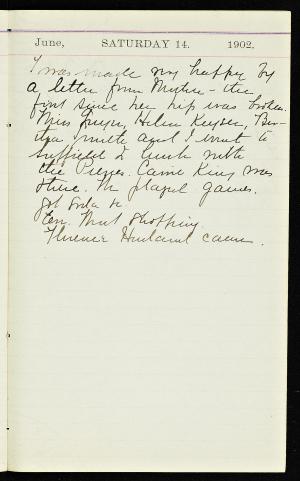 June, SATURDAY 14. 1902.
I was made very happy by
a letter from Mother - the
first since her hip was broken.
Miss Helen Keyser,
and I went to
Suffield to lunch with
the Camie King was
there. We played games.
got Soda
ten. Went shopping.
Florence came.